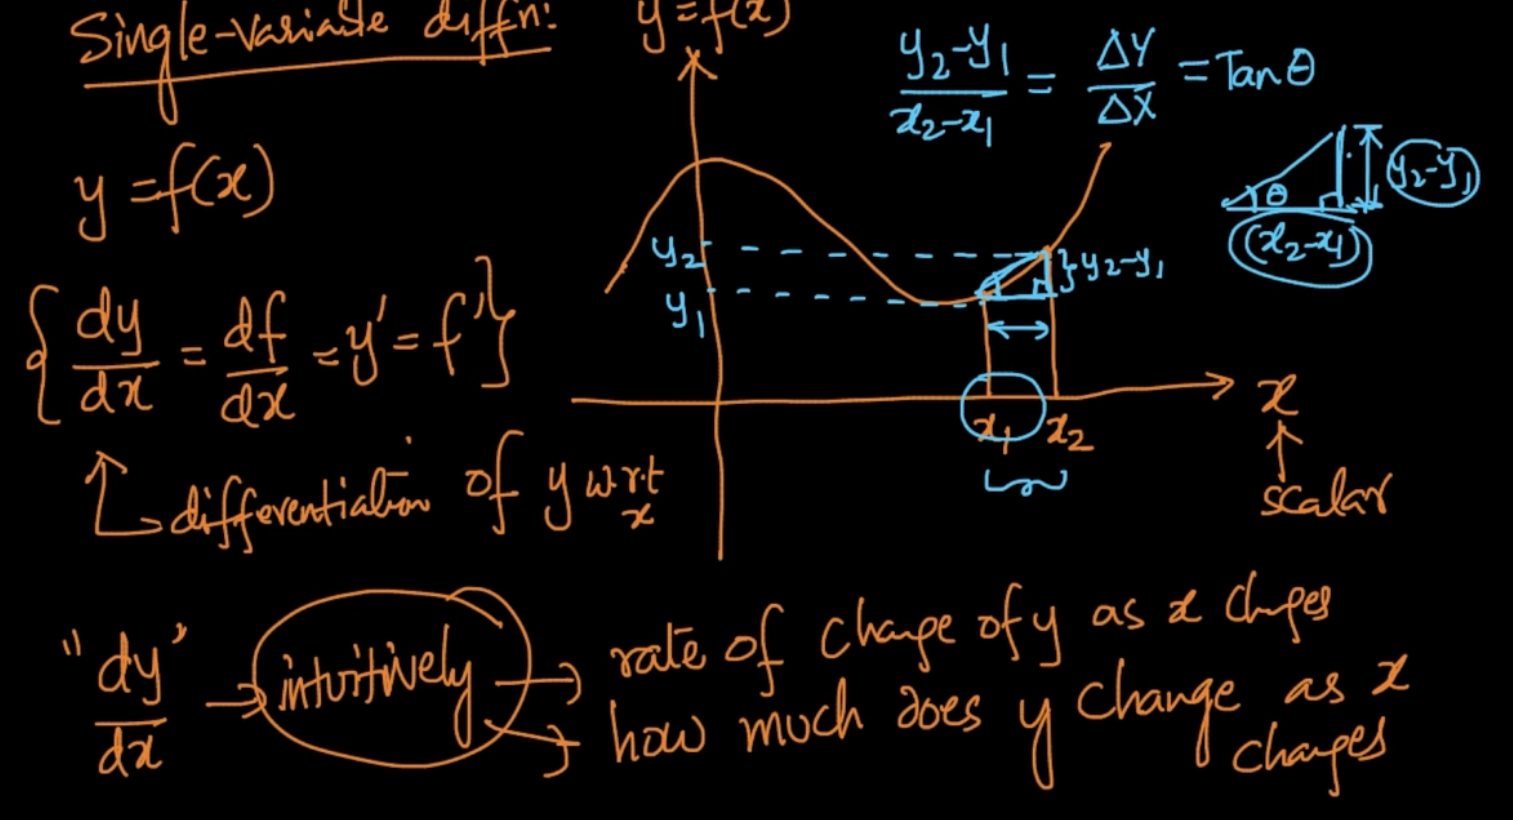 Single-variable diffn:
y = f(x)
y = f(x)
{ dy/dx = df/dx = y' = f' }
differentiation of y w.r.t x
(y₂-y₁)/(x₂-x₁) = ΔY/ΔX = Tan θ
θ
y₂-y₁
(x₂-x₁)
y₂
y₁
} y₂-y₁
x₁ x₂
x
scalar
"dy/dx" → intuitively → rate of change of y as x changes
→ how much does y change as x
changes